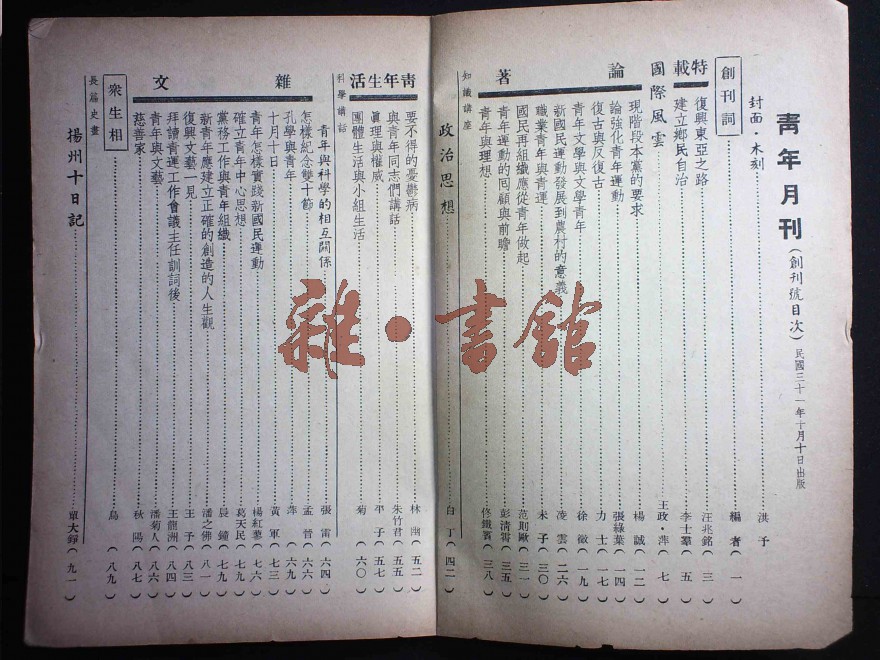 青年月刊(創刊號目次)民國三十一年十月十日出版
封面·木刻 洪予
創刊詞 編者(一)
特載
復興東亞之路 汪兆銘(三)
建立鄉民自治 李士羣(五)
國際風雲 王政·萍(七)
論著
現階段本黨的要求 楊誠(一二)
論強化青年運動 張綠葉(一四)
復古與反復古 力士(一七)
青年文學與文學青年 徐徵(一九)
新國民運動發展到農村的意義 凌雲(二六)
職業青年與青運 未子(三〇)
國民再組織應從青年做起 范則歐(三一)
青年運動的囘顧與前瞻 彭清霄(三五)
青年與理想 佟鐵賓(三八)
知識講座
政治思想 白丁(四二)
青年生活
要不得的憂鬱病 林幽(五二)
與青年同志們講話 朱竹君(五五)
眞理與權威 平子(五七)
團體生活與小組生活 菊(六〇)
科學講話
青年與科學的相互關係 張雷(六四)
雜文
怎樣紀念雙十節 孟晉(六六)
孔學與青年 萍(六九)
十月十日 黃軍(七三)
青年怎樣實踐新國民運動 楊紅蓼(七六)
確立青年中心思想 葛天民(七九)
黨務工作與青年組織 晨鐘(七九)
新青年應建立正確的創造的人生觀 潘之佛(八一)
復興文藝一見 王予(八三)
拜讀青運工作會議主任訓詞後 王龍洲(八四)
青年與文藝 潘菊人(八六)
慈善家 秋陽(八七)
衆生相 烏(八九)
長篇史畫
揚州十日記 單大錚(九一)
雜·書館